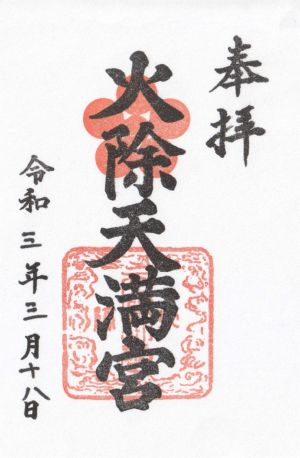 奉拝
火除天満宮
令和三年三月十八日